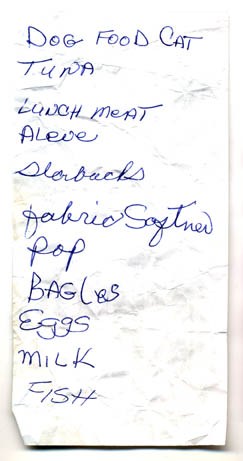 DOG FOOD CAT
TUNA
LUNCH MEAT
Aleve
Starbucks
fabric Softner
POP
BAGLes
Eggs
MILK
FISH